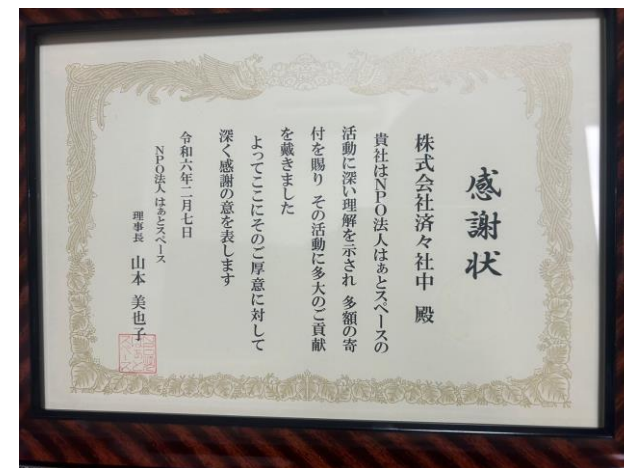 感謝状
株式会社済々社中 殿
貴社はNPO法人はぁとスペースの
活動に深い理解を示され 多額の寄
付を賜り その活動に多大のご貢献
を戴きました
よってここにそのご厚意に対して
深く感謝の意を表します
令和六年二月七日
NPO法人 はぁとスペース
理事長 山本 美也子